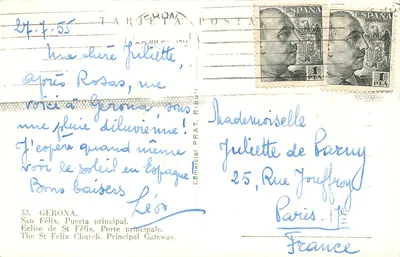 TARJETA POSTAL
27.7.55
Ma chère Juliette,
après Rosas, me
voici à Gerona, sous
une pluie diluvienne!
J'espère quand même
voir le soleil en Espagne
Bons baisers
Léo
33. GERONA.
San Félix. Puerta principal.
Eglise de St Félix. Porte principale.
The St Felix Church. Principal Gateway.
ESPAÑA
1
PTA
ESPAÑA
1
PTA
Mademoiselle
Juliette de Parny
25, Rue Jouffroy
Paris. 17e
France